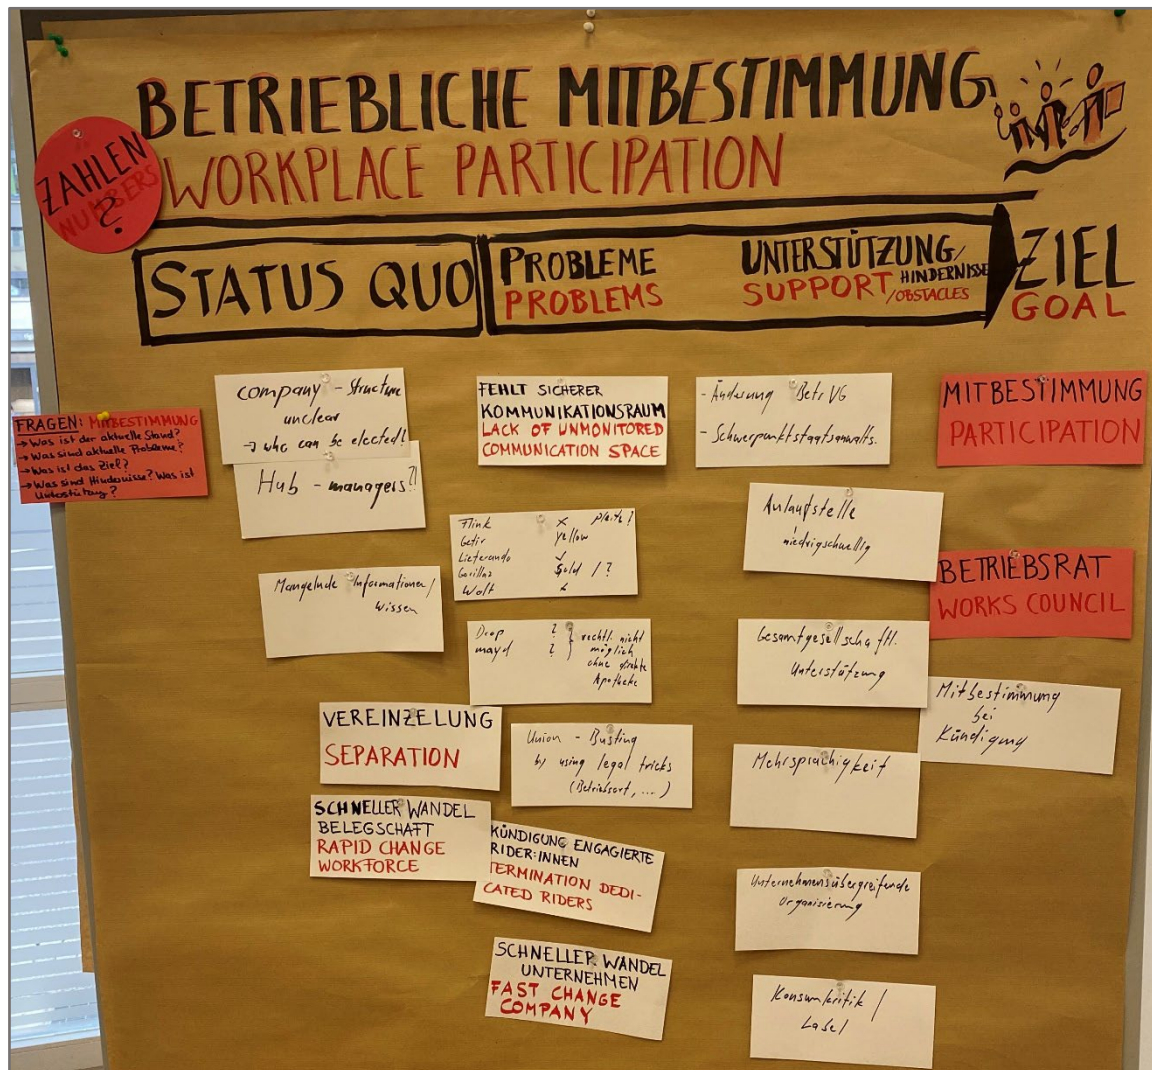 BETRIEBLICHE MITBESTIMMUNG
WORKPLACE PARTICIPATION
ZAHLEN
NUMBERS
?
STATUS QUO
PROBLEME
PROBLEMS
UNTERSTÜTZUNG/
HINDERNISSE
SUPPORT /OBSTACLES
ZIEL
GOAL
FRAGEN: MITBESTIMMUNG
→ Was ist der aktuelle Stand?
→ Was sind aktuelle Probleme?
→ Was ist das Ziel?
→ Was sind Hindernisse? Was ist
Unterstützung?
company - Structure
unclear
→ who can be elected?
Hub - managers?!
Mangelnde Informationen/
Wissen
VEREINZELUNG
SEPARATION
SCHNELLER WANDEL
BELEGSCHAFT
RAPID CHANGE
WORKFORCE
FEHLT SICHERER
KOMMUNIKATIONSRAUM
LACK OF UNMONITORED
COMMUNICATION SPACE
Flink x pleite?
Getir yellow
Lieferando ✓
Gorillas Sold / ?
Wolt
Drop ?
mayd ?
} rechtl. nicht
möglich
ohne direkte
Apotheke
Union - Busting
by using legal tricks
(Betriebsort, ...)
KÜNDIGUNG ENGAGIERTE
RIDER:INNEN
TERMINATION DEDI-
CATED RIDERS
SCHNELLER WANDEL
UNTERNEHMEN
FAST CHANGE
COMPANY
- Änderung BetrVG
- Schwerpunktstaatsanwalts.
Anlaufstelle
niedrigschwellig
Gesamtgesellschaftl.
Unterstützung
Mehrsprachigkeit
Unternehmensübergreifende
Organisierung
Konsumkritik /
Label
MITBESTIMMUNG
PARTICIPATION
BETRIEBSRAT
WORKS COUNCIL
Mitbestimmung
bei
Kündigung